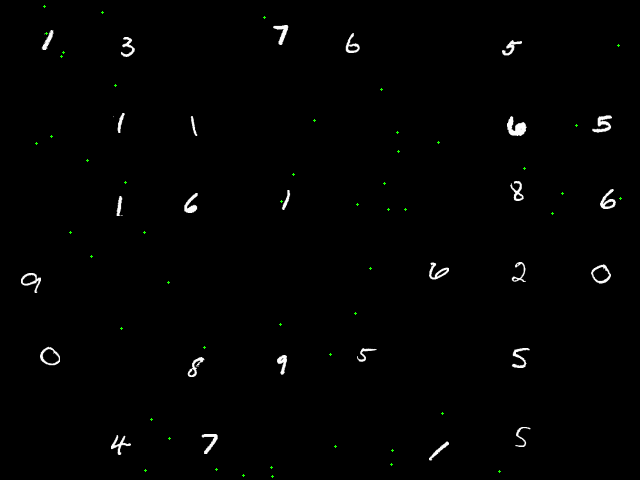 1 3 7 6 5
1 1 6 5
1 6 1 8 6
9 6 2 0
0 8 9 5 5
4 7 1 5